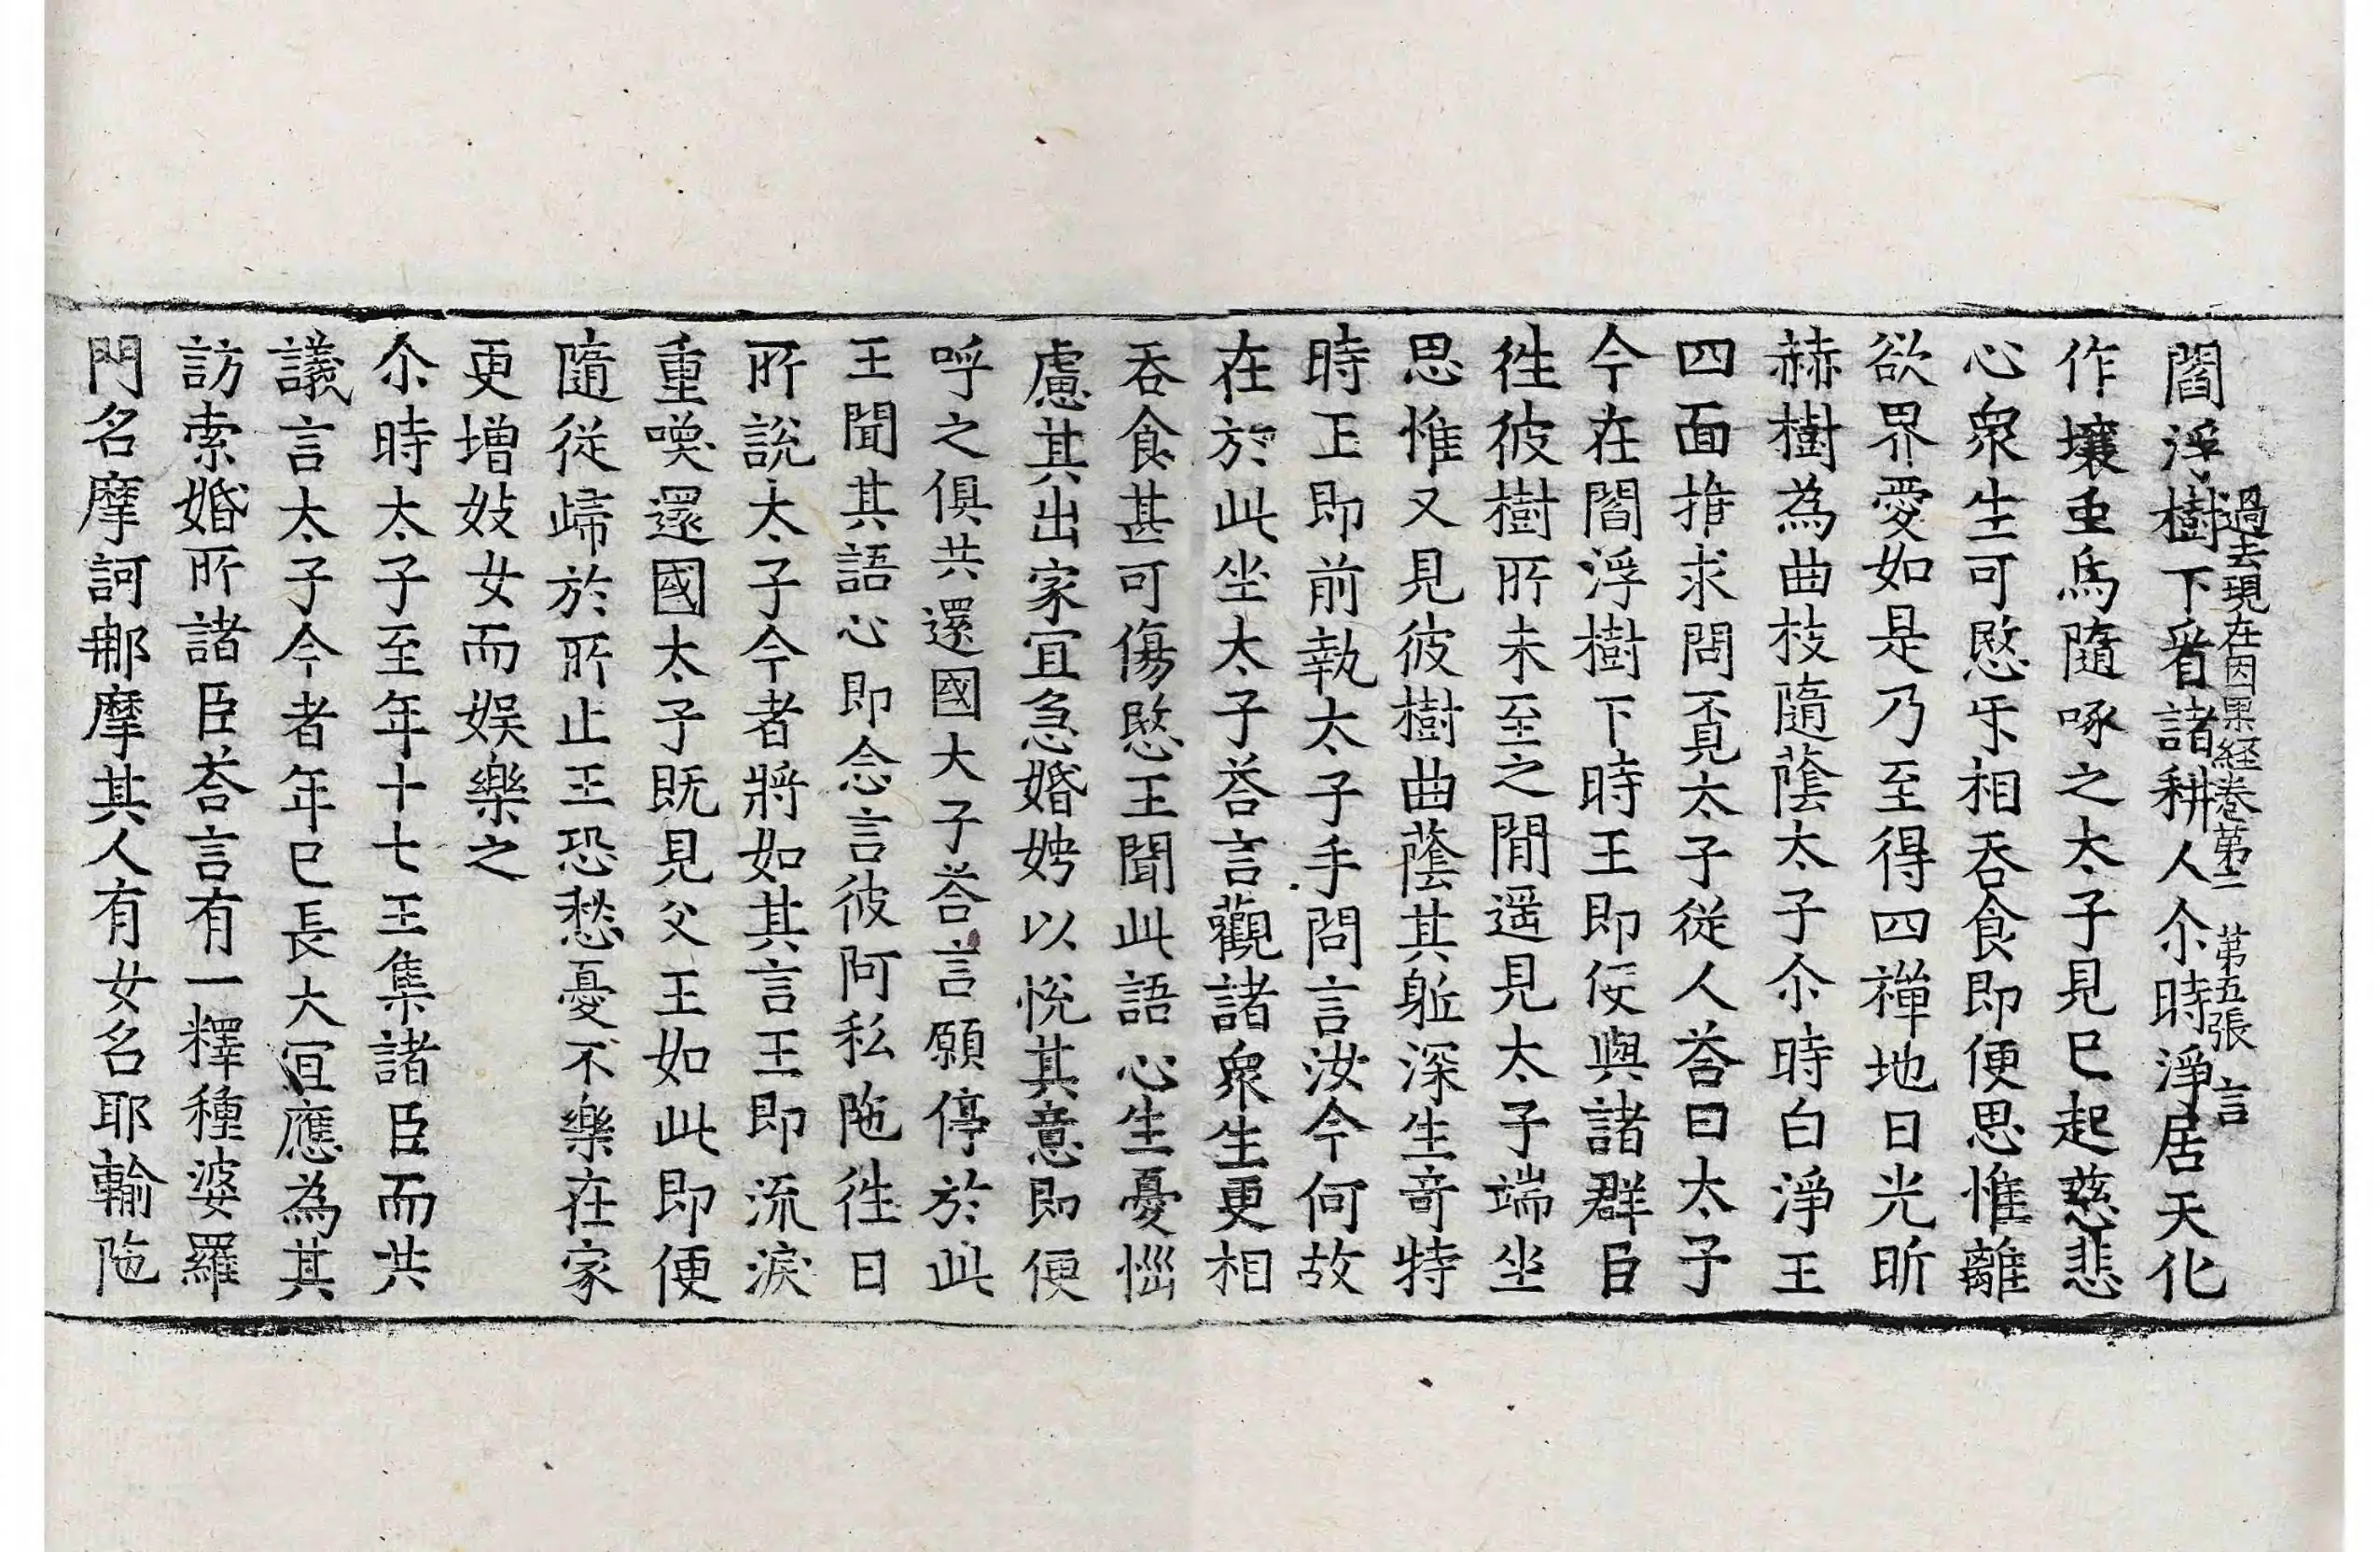 過去現在因果経卷第二 第五張 言
閻浮樹下㸔諸耕人尒時淨居天化
作壤虫烏隨啄之太子見已起慈悲
心衆生可愍㸦相吞食即便思惟離
欲界愛如是乃至得四禪地日光昕
赫樹為曲枝隨蔭太子尒時白淨王
四面推求問覔太子從人荅曰太子
今在閻浮樹下時王即便與諸群臣
徃彼樹所未至之間遥見太子端坐
思惟又見彼樹曲蔭其軀深生竒特
時王即前執太子手問言汝今何故
在於此坐太子荅言觀諸衆生更相
吞食甚可傷愍王聞此語心生憂惱
慮其出家宜急婚娉以悅其意即便
呼之俱共還國太子荅言願停於此
王聞其語心即念言彼阿私陁徃日
所說太子今者將如其言王即流淚
重喚還國太子既見父王如此即便
隨從歸於所止王恐愁憂不樂在家
更增妓女而娱樂之
尒時太子至年十七王集諸臣而共
議言太子今者年已長大宜應為其
訪索婚所諸臣荅言有一釋種婆羅
門名摩訶那摩其人有女名耶輸陁